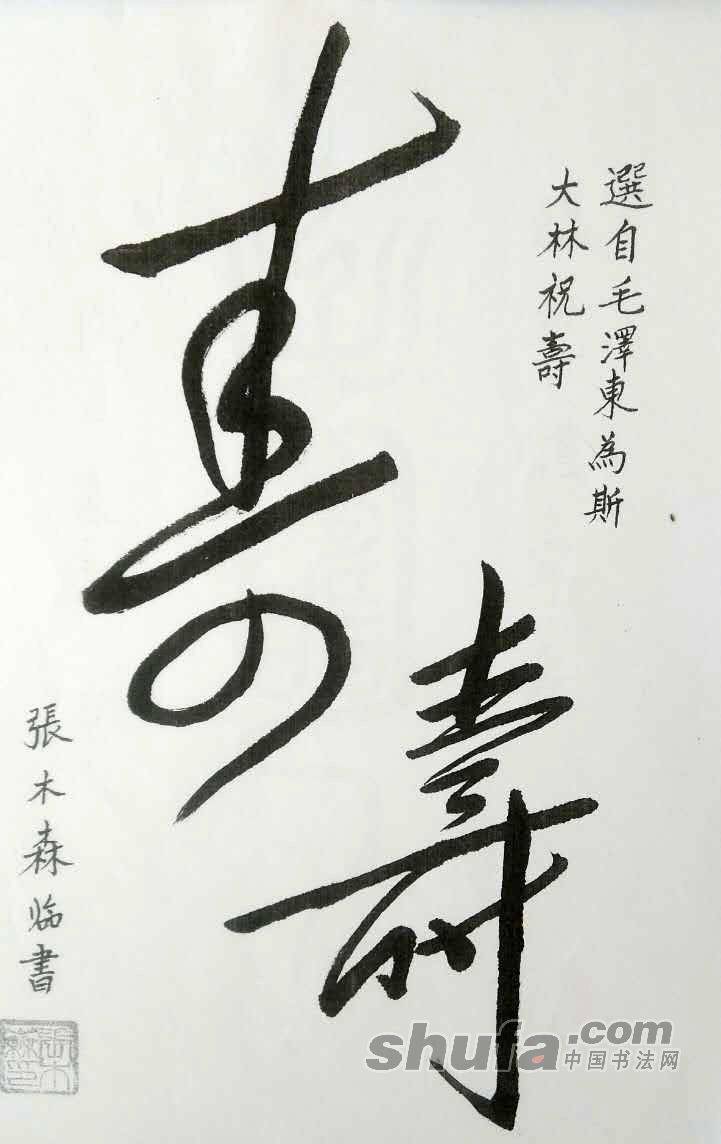 選自毛澤東為斯
大林祝壽
壽
壽
張木森臨書
shufa.com
中国书法网